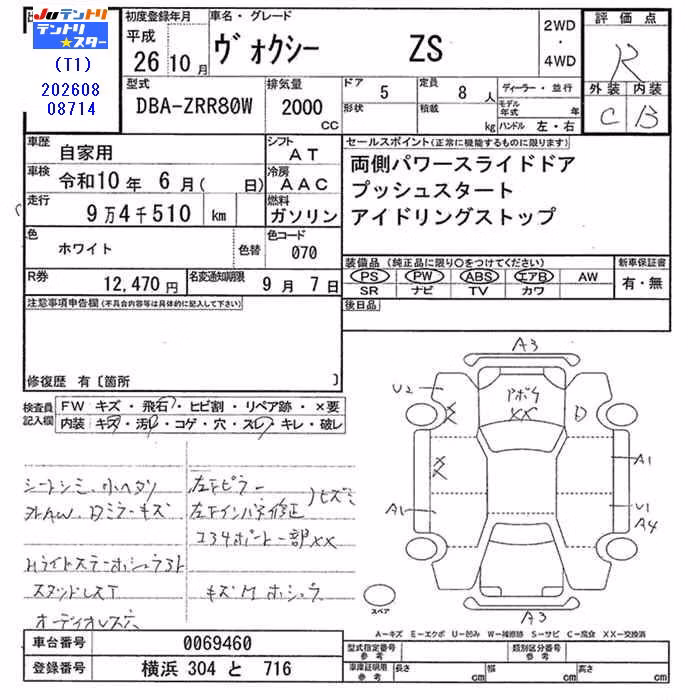 Juテントリ
テントリ
★スター
(T1)
202608
08714
初度登録年月
平成
26 10 月
車名・グレード
ヴォクシー ZS
2WD
・
4WD
評価点
R
外装 内装
C B
型式
DBA-ZRR80W
排気量
2000
CC
ドア 5
形状
定員 8 人
積載 kg
ディーラー・並行
モデル年式 年
ハンドル 左・右
車歴 自家用
シフト AT
車検 令和10年 6月( 日)
冷房 AAC
走行 9万4千510 km
燃料 ガソリン
色 ホワイト 色替
色コード 070
R券 12,470円
名変通知期限 9月 7日
セールスポイント(正常に機能するものに限ります)
両側パワースライドドア
プッシュスタート
アイドリングストップ
装備品(純正品に限り○をつけてください)
PS PW ABS エアB AW
SR ナビ TV カワ
新車保証書
有・無
後日品
注意事項申告欄(不具合内容等は具体的に記入して下さい)
修復歴 有〔箇所 〕
検査員記入欄
FW キズ・飛石・ヒビ割・リペア跡・×要
内装 キズ・汚れ・コゲ・穴・スレ・キレ・破レ
シートシミ、小ヘタリ
外AW、Dミラーキズ
スタッドレスT
オーディオレス穴
左Fピラー
左Fインパネ修正
ヒズミ
コアサポート一部XX
A3
U2
XX
アボチ
XX
D
XX
A1
A1
U1
A4
A3
スペア
A−キズ E−エクボ U−凹み W−補修跡 S−サビ C−腐食 XX−交換済
車台番号 0069460
登録番号 横浜 304 と 716
型式指定番号
参考
類別区分番号
参考
車庫証明用
参考
長さ cm
幅 cm
高さ cm